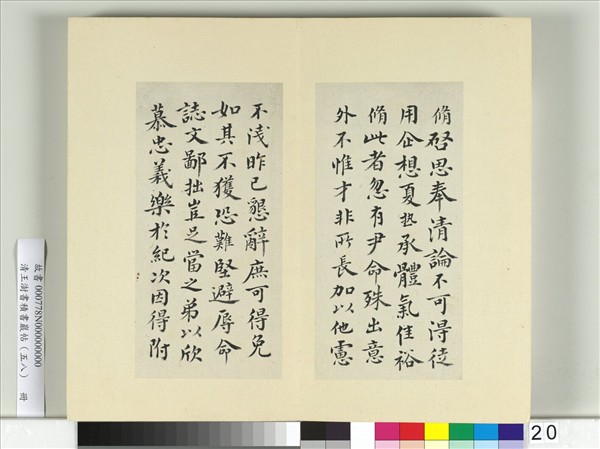 脩啓思奉清論不可得徒
用企想夏熱承體氣佳裕
脩此者忽有尹命殊出意
外不惟才非所長加以他慮
不淺昨已懇辭庶可得免
如其不獲恐難堅避辱命
誌文鄙拙豈足當之弟以欣
慕忠義樂於紀次因得附
故書000778N00000000
清王澍書積書巖帖(五八) 冊
20